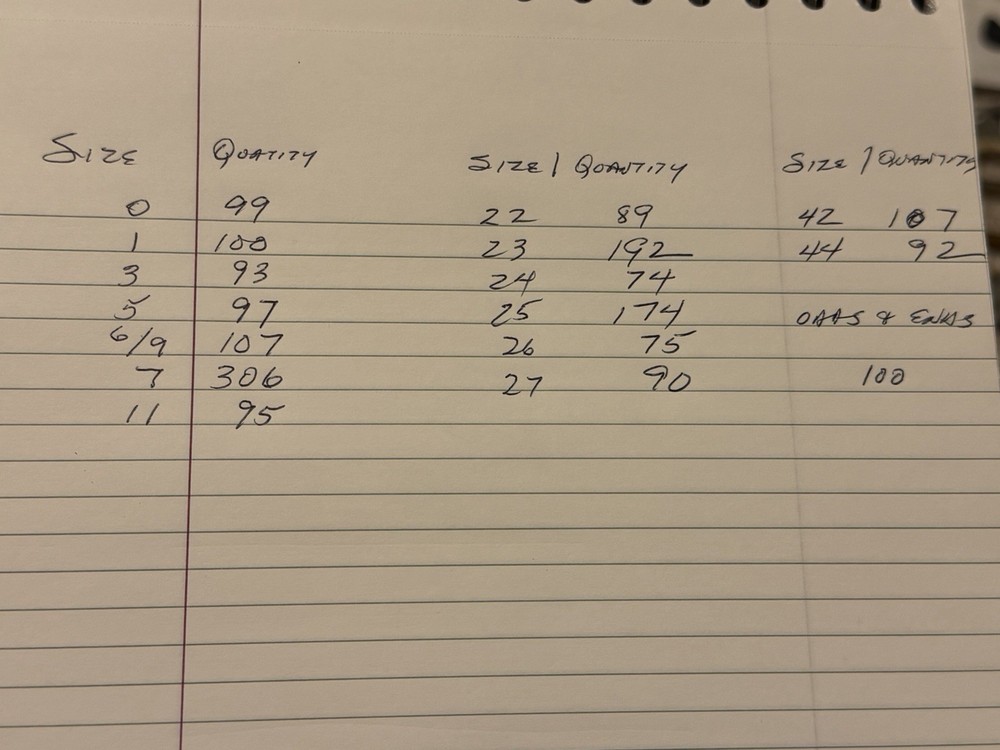 SIZE QUATITY SIZE | QUANTITY SIZE / QUANTITY
0 99 22 89 42 107
1 100 23 192 44 92
3 93 24 74
5 97 25 174 &
6/9 107 26 75
7 306 27 90 100
11 95